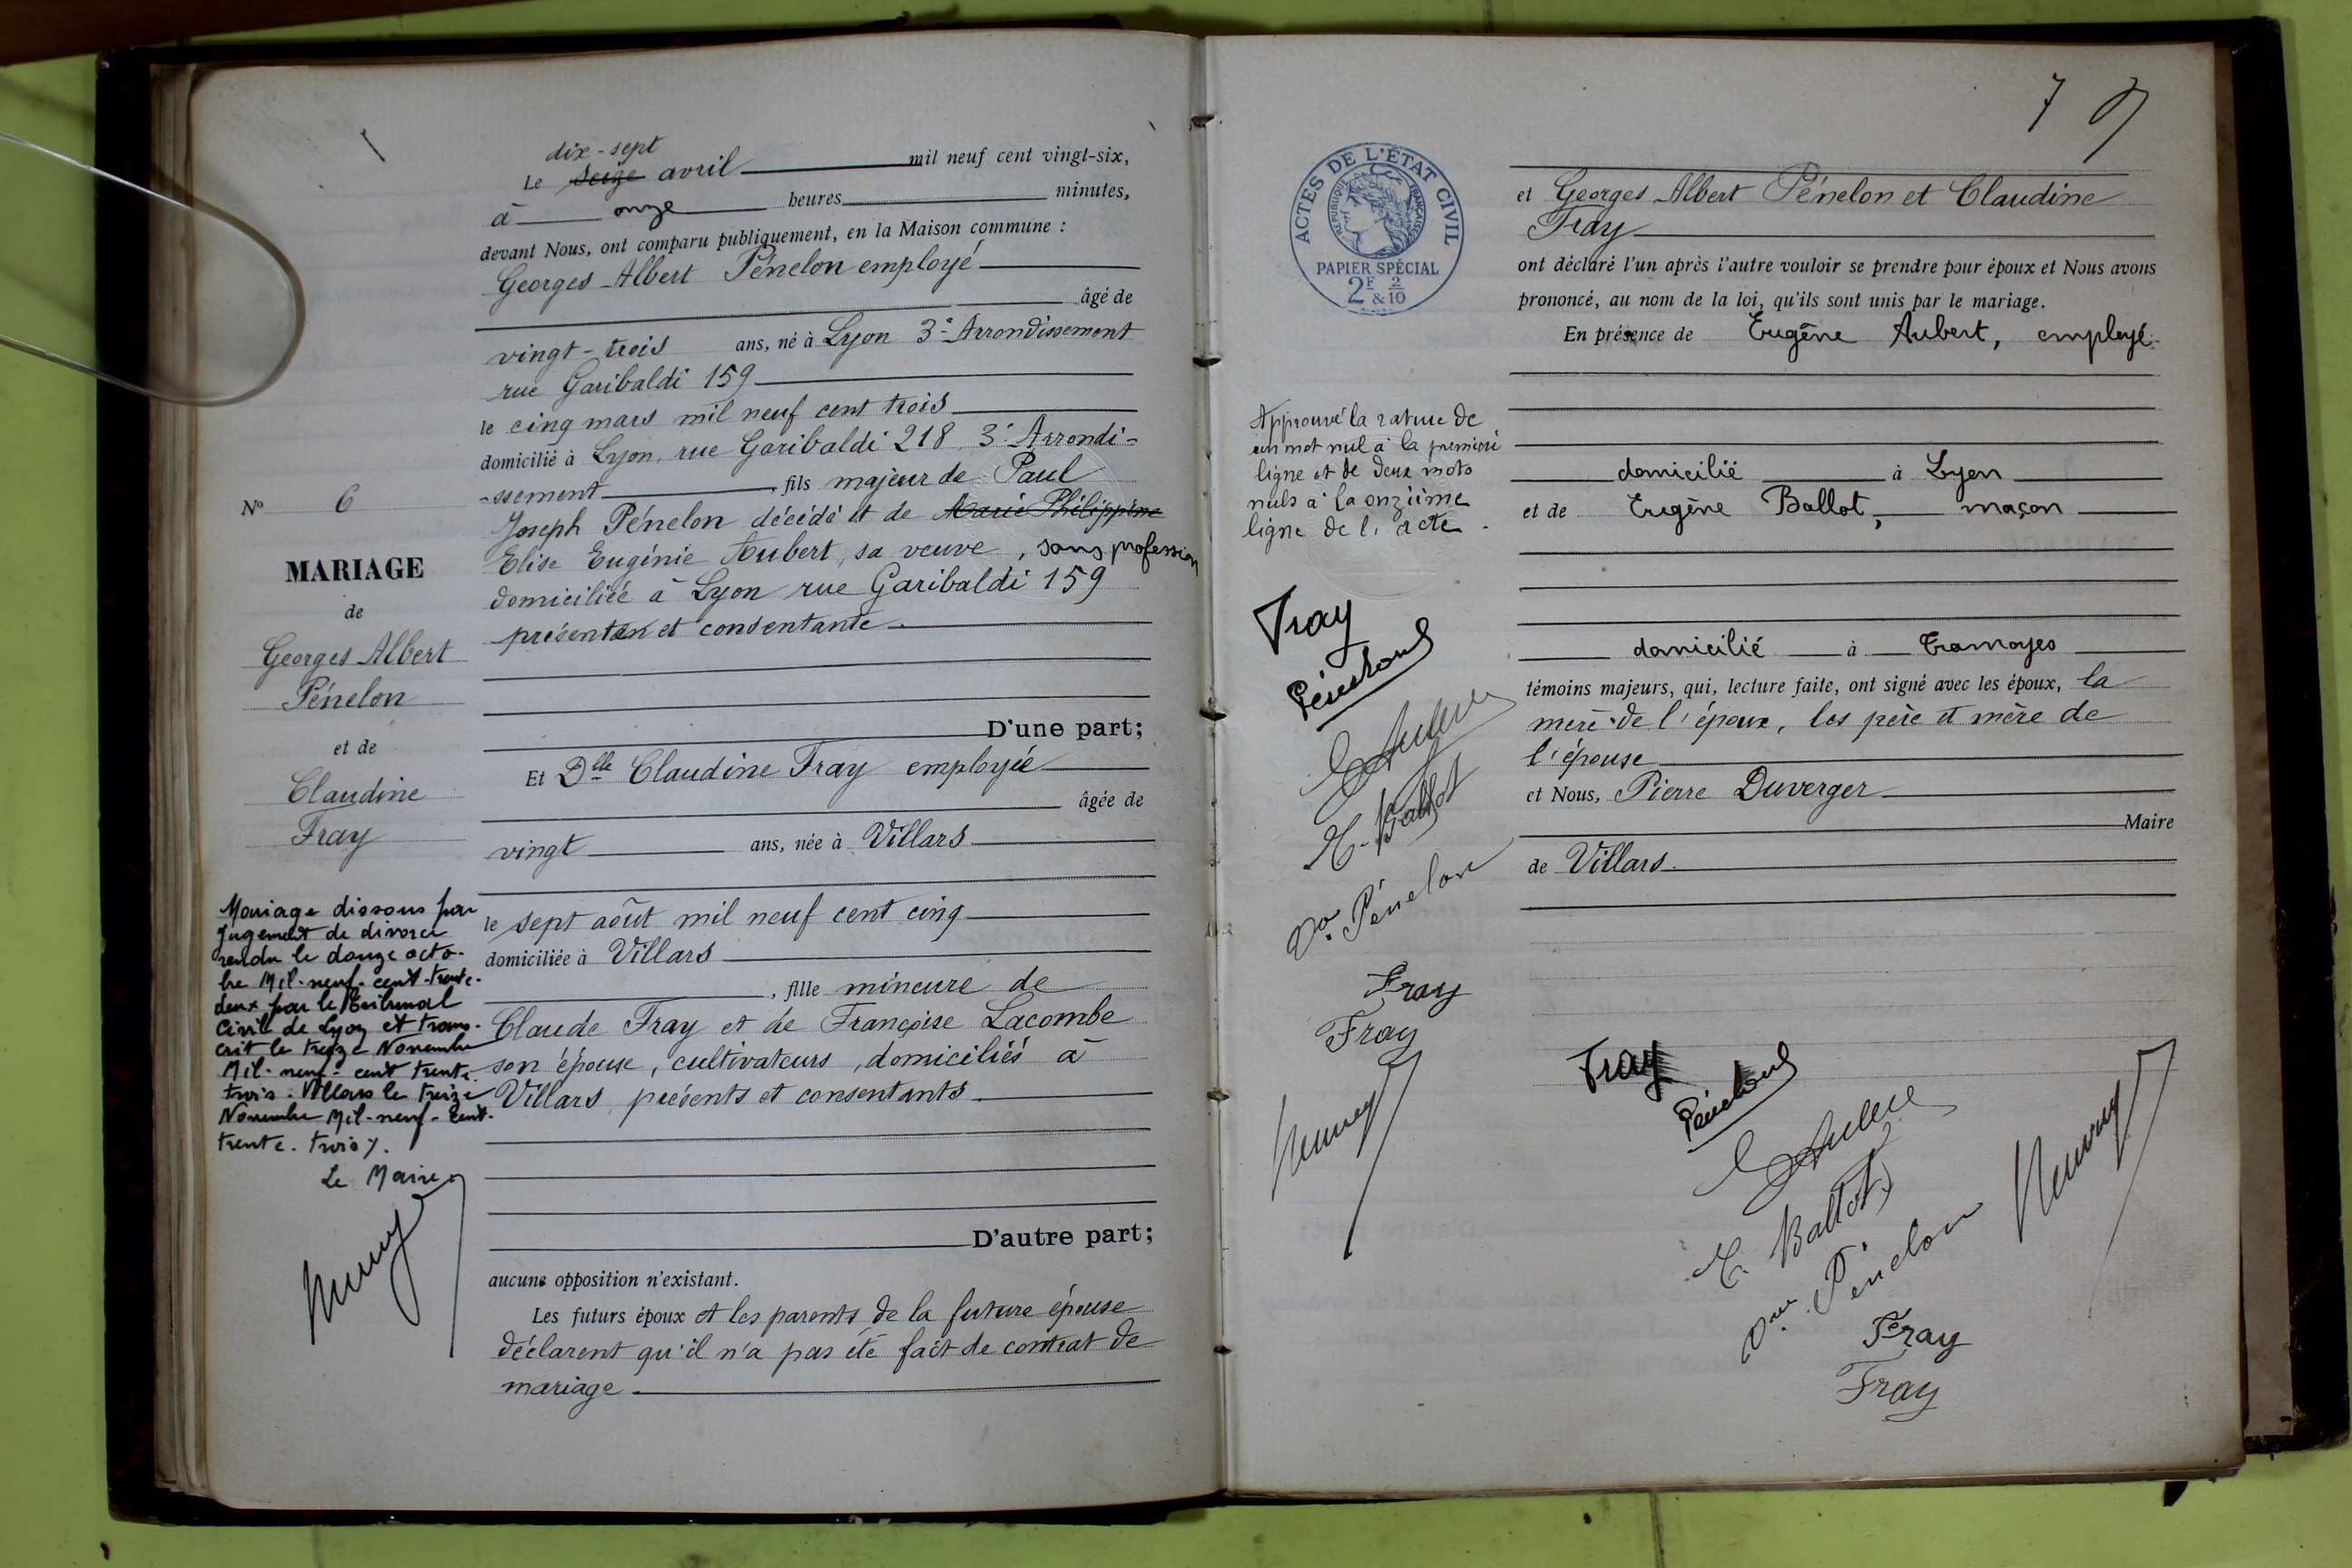 dix-sept
Le seize avril mil neuf cent vingt-six,
à onze heures minutes,
devant Nous, ont comparu publiquement, en la Maison commune :
Georges Albert Pénelon employé
âgé de
vingt-trois ans, né à Lyon 3e Arrondissement
rue Garibaldi 159
le cinq mars mil neuf cent trois
domicilié à Lyon, rue Garibaldi 218, 3e Arrondi-
-ssement , fils majeur de Paul
Joseph Pénelon décédé et de Marie Philippine
Elise Eugénie Aubert, sa veuve, sans profession
domiciliée à Lyon rue Garibaldi 159
présente et consentante.
D'une part;
Et Dlle Claudine Fray employée
âgée de
vingt ans, née à Villars
le sept août mil neuf cent cinq
domiciliée à Villars
, fille mineure de
Claude Fray et de Françoise Lacombe
son épouse, cultivateurs, domiciliés à
Villars, présents et consentants.
D'autre part;
aucune opposition n'existant.
Les futurs époux et les parents de la future épouse
déclarent qu'il n'a pas été fait de contrat de
mariage
No 6
MARIAGE
de
Georges Albert
Pénelon
et de
Claudine
Fray
Mariage dissous par
jugement de divorce
rendu le douze octo-
bre Mil-neuf-cent-trente-
deux par le Tribunal
Civil de Lyon et trans-
crit le treize Novembre
Mil-neuf-cent trente-
trois. Villars le treize
Novembre Mil-neuf-cent-
trente-trois
Le Maire
7
ACTES DE L'ÉTAT CIVIL
RÉPUBLIQUE FRANÇAISE
PAPIER SPÉCIAL
2F & 2/10
et Georges Albert Pénelon et Claudine
Fray
ont déclaré l'un après l'autre vouloir se prendre pour époux et Nous avons
prononcé, au nom de la loi, qu'ils sont unis par le mariage.
En présence de Eugène Aubert, employé
domicilié à Lyon
et de Eugène Ballot, maçon
domicilié à Tramoyes
témoins majeurs, qui, lecture faite, ont signé avec les époux, la
mère de l'époux, les père et mère de
l'épouse
et Nous, Pierre Duverger
Maire
de Villars
Approuvé la rature de
un mot nul à la première
ligne et de deux mots
nuls à la onzième
ligne de l'acte.
Fray
E. Ballot
Vve Pénelon
Fray
Fray
Fray
E. Ballot
Vve Pénelon
Fray
Fray